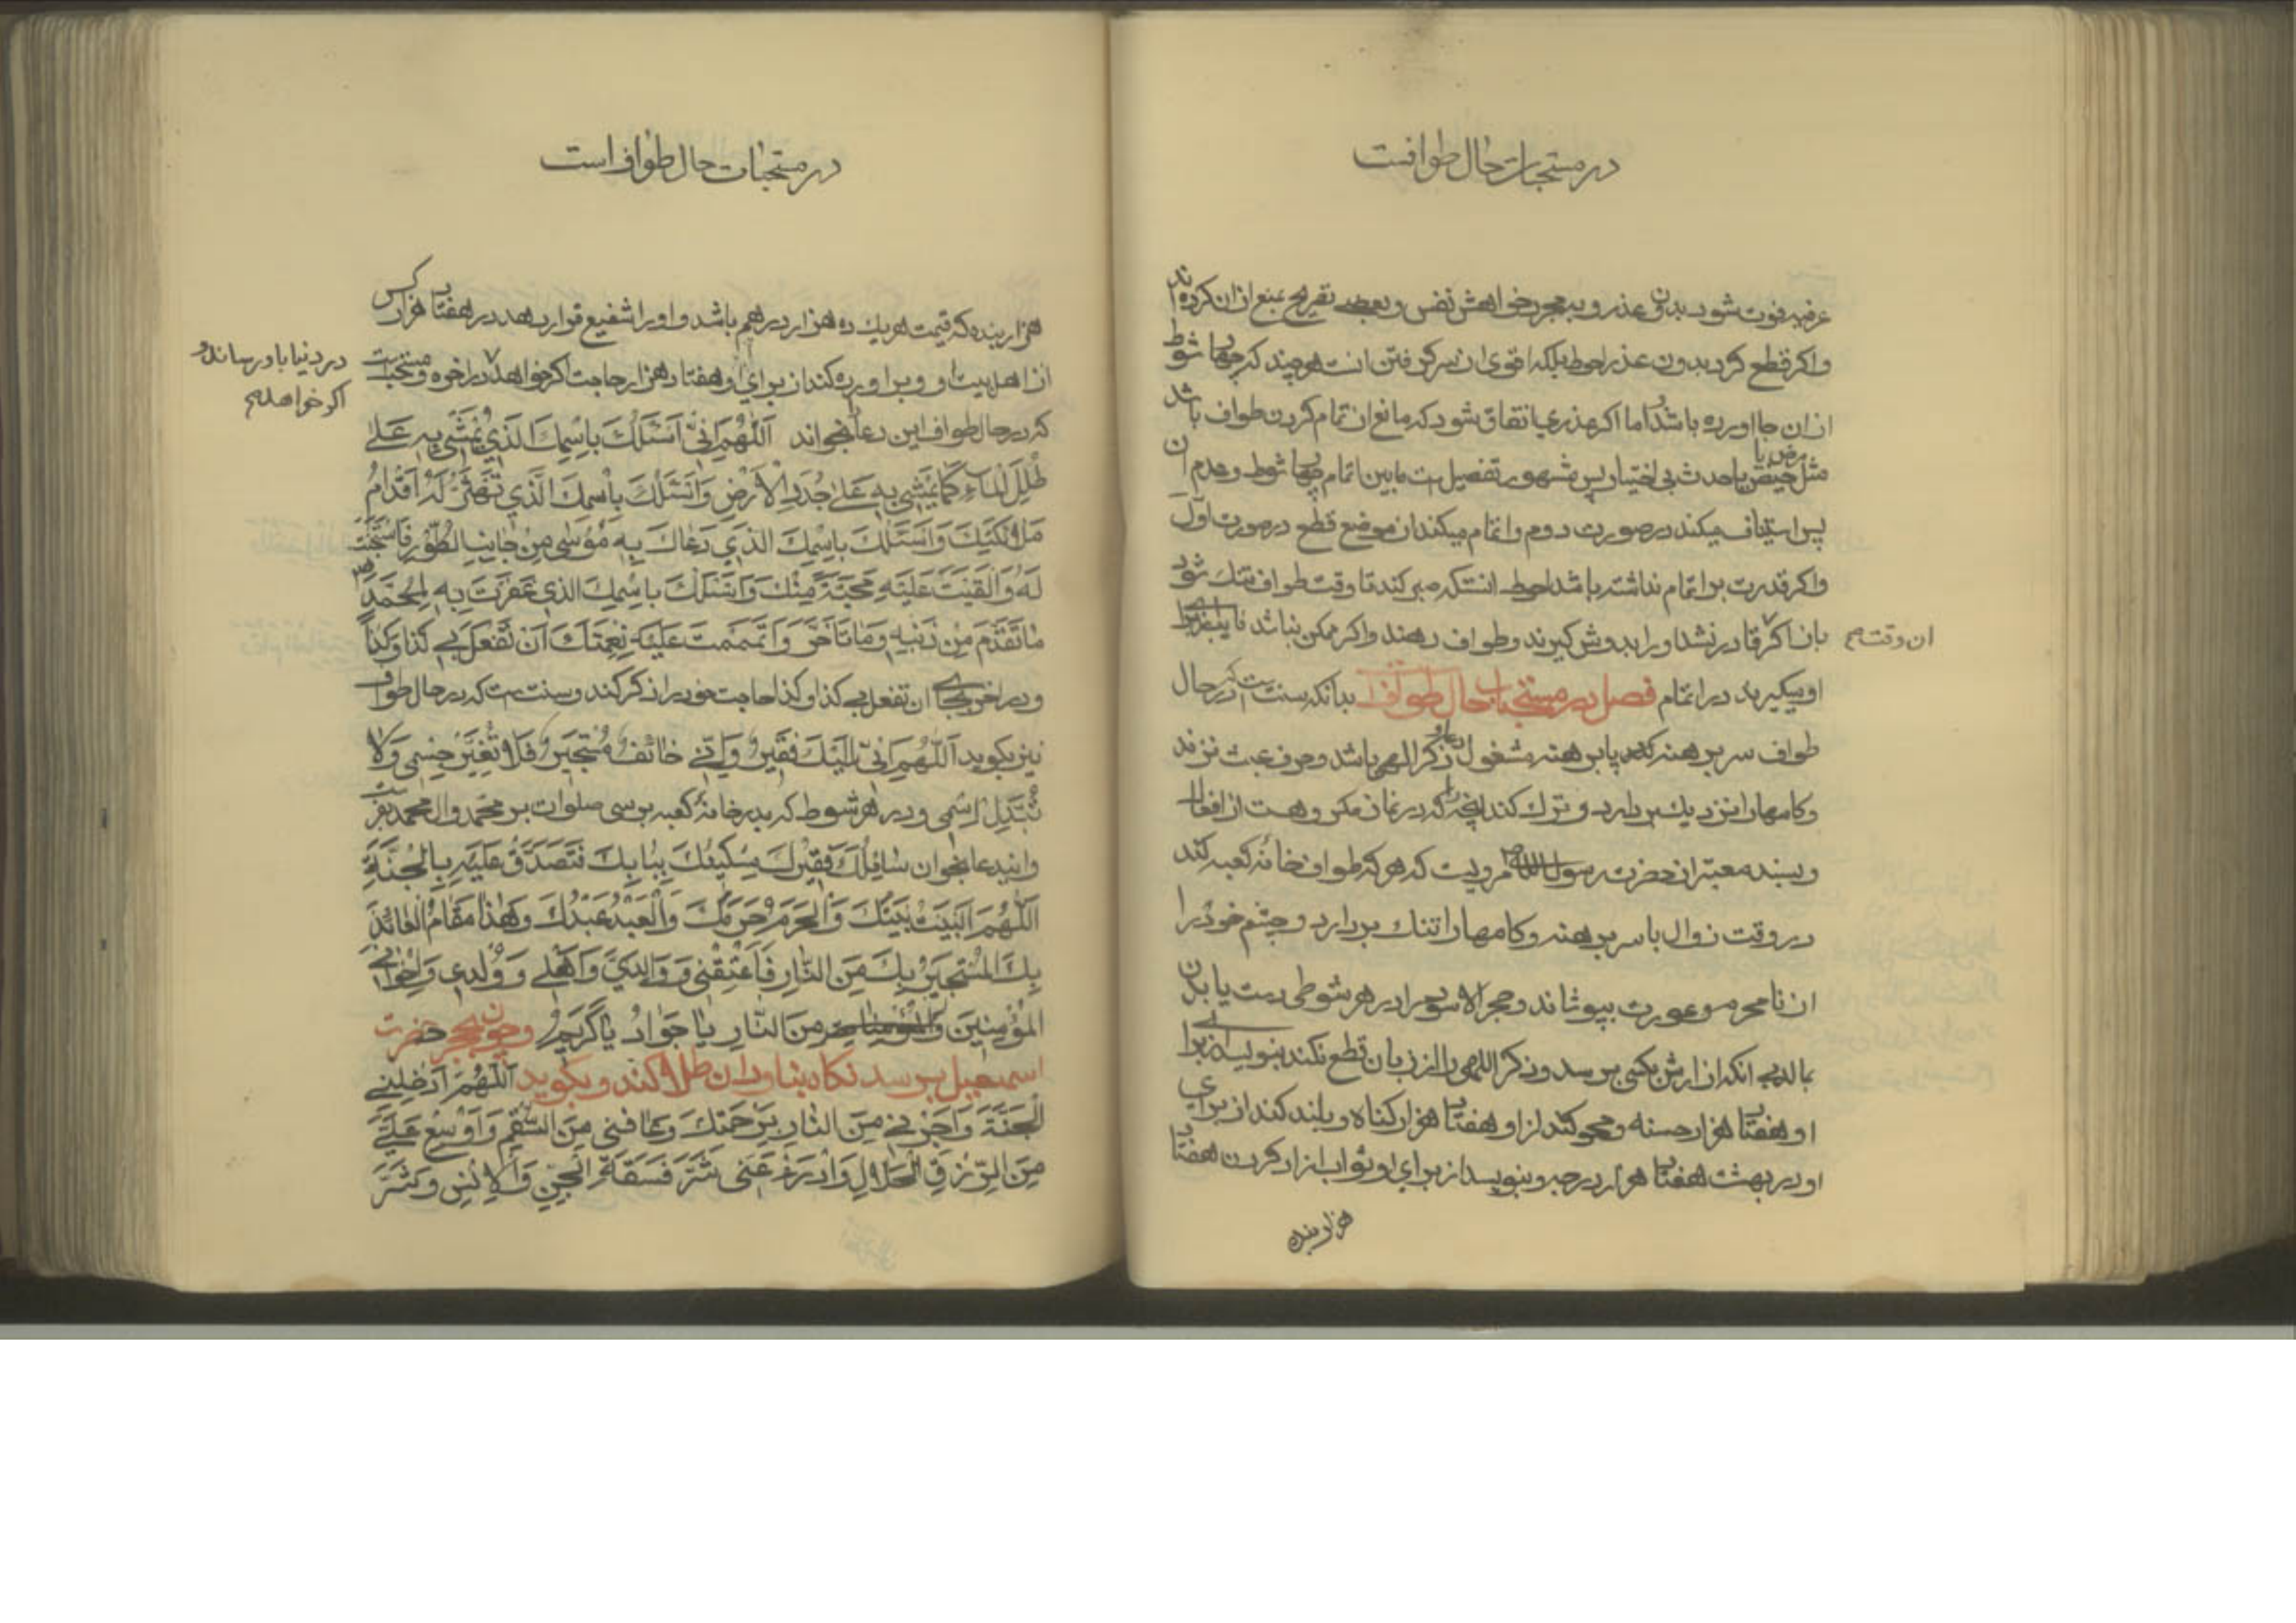 در مستحبات حال طوافست
عرفیه فوت شود بدون عذر و بمجرد خواهش نفس و بعضی تصریح بمنع ازان کرده‌اند
و اکر قطع کرد بدون عذر احوط بلکه اقوی از سر کرفتن است هرچند که چهار شوط
ازان جا اورده باشد اما اکر عذری اتفاق شود که مانع از تمام کردن طواف باشد
مثل حیض یا مرض یا حدث بی اختیار پس مشهور تفصیل است مابین اتمام چهار شوط و عدم ان
پس استیناف میکند در صورت دوم و اتمام میکند از موضع قطع در صورت اول
و اکر قدرت بر اتمام نداشته باشد احوط انستکه صبر کند تا وقت طواف تنک شود
بان اکر قادر نشد او را بدوش کیرند و طواف دهند و اکر ممکن نباشد نایب از برای
ان وقت صح
او بکیرند در اتمام فصل در مستحبات حال طواف بدانکه سنت است که در حال
طواف سر برهنه کند پا برهنه مشغول دعا و ذکر الهی باشد و حرف عبث نزند
و کامها را نزدیک بردارد و ترک کند انچه را که در نماز مکروهست از افعال
و بسند معتبر از حضرت رسول الله ص مرویست که هر که طواف خانه کعبه کند
در وقت زوال با سر برهنه و کامها را تنک بردارد و چشم خود را
از نامحرم و عورت بپوشاند و حجر الاسود را در هر شوطی دست یا بدن
بمالد بی انکه ازارش بکسی برسد و ذکر الهی را از زبان قطع نکند بنویسد از برای
او هفتاد هزار حسنه و محو کند از او هفتاد هزار کناه و بلند کند از برای
او در بهشت هفتاد هزار درجه و بنویسد از برای او ثواب ازاد کردن هفتاد
هزار بنده
در مستحبات حال طواف است
هزار بنده که قیمت هر یک ده هزار درهم باشد و او را شفیع قرار دهد در هفتاد هزار کس
از اهل بیت او و براورده کند از برای او هفتاد هزار حاجت اکر خواهد در اخره و مستحبست
در دنیا باو رساند و
اکر خواهد صح
که در حال طواف این دعا بخواند اَللّهُمَّ اِنّی اَسْئَلُکَ بِاسْمِکَ الَّذی یُمْشی بِهِ عَلی
طَلَلِ الماءِ کَما یُمْشی بِهِ عَلی جُدَدِ الْاَرْضِ وَ اَسْئَلُکَ بِاسْمِکَ الَّذی تَهْتَزُّ لَهُ اَقْدامُ
مَلائِکَتِکَ وَ اَسْئَلُکَ بِاسْمِکَ الَّذی دَعاکَ بِهِ مُوسی مِنْ جانِبِ الطُّورِ فَاسْتَجَبْتَ
لَهُ وَ اَلْقَیْتَ عَلَیْهِ مَحَبَّةً مِنْکَ وَ اَسْئَلُکَ بِاسْمِکَ الَّذی غَفَرْتَ بِهِ لِمُحَمَّدٍ ص
ما تَقَدَّمَ مِنْ ذَنْبِهِ وَ ما تَاَخَّرَ وَ اَتْمَمْتَ عَلَیْهِ نِعْمَتَکَ اَنْ تَفْعَلَ بی کَذا وَ کَذا
و در اخر بجای ان تفعل بی کذا و کذا حاجت خود را ذکر کند و سنت است که در حال طواف
نیز بکوید اَللّهُمَّ اِنّی اِلَیْکَ فَقیرٌ وَ اِنّی خائِفٌ مُسْتَجیرٌ فَلا تُغَیِّرْ جِسْمی وَ لا
تُبَدِّلْ اِسْمی و در هر شوط که بدر خانهٔ کعبه برسی صلوات بر محمد و ال محمد بفرست
و ایندعا بخوان سائِلُکَ فَقیرُکَ مِسْکینُکَ بِبابِکَ فَتَصَدَّقْ عَلَیْهِ بِالْجَنَّةِ
اَللّهُمَّ الْبَیْتُ بَیْتُکَ وَ الْحَرَمُ حَرَمُکَ وَ الْعَبْدُ عَبْدُکَ وَ هذا مَقامُ الْعائِذِ
بِکَ الْمُسْتَجیرِ بِکَ مِنَ النّارِ فَاَعْتِقْنی وَ والِدَیَّ وَ اَهْلی وَ وُلْدی وَ اِخْوانِیَ
الْمُؤْمِنینَ وَ المؤمنات مِنَ النّارِ یا جَوادُ یا کَریمُ و چون بحجر حضرت
اسمعیل برسد نکاه بناودان طلا کند و بکوید اَللّهُمَّ اَدْخِلْنِی
الْجَنَّةَ وَ اَجِرْنی مِنَ النّارِ بِرَحْمَتِکَ وَ عافِنی مِنَ السُّقْمِ وَ اَوْسِعْ عَلَیَّ
مِنَ الرِّزْقِ الْحَلالِ وَ ادْرَءْ عَنّی شَرَّ فَسَقَةِ الْجِنِّ وَ الْاِنْسِ وَ شَرَّ